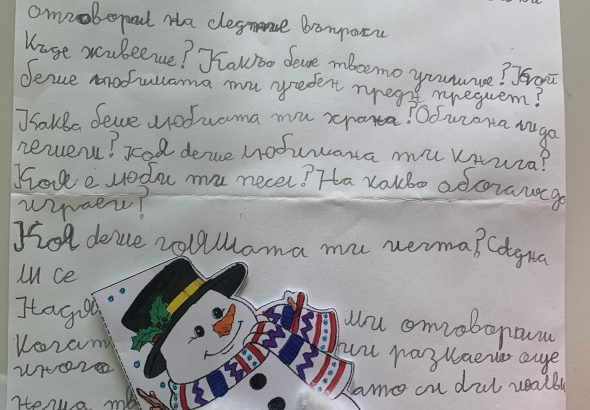 отговори на следните въпроси
Къде живееше? Какво беше твоето училище? Кой
беше любимата ти учебен предн предмет?
Каква беше любиата ти храна? Обичана ли да
четеш? Коя беше любимана ти книга?
Коя е люби ти песен? На какво обичаше да
играеш?
Коя беше голямата ти мечта? Сбъдна
ли се
Надя ми отговориш
Когат ми разкаеш още
много ато си бил
Неща